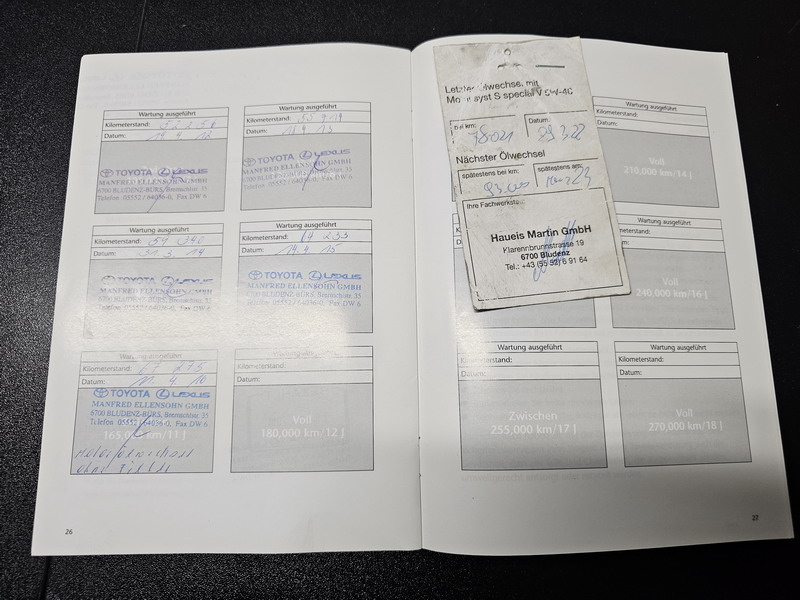 Wartung ausgeführt
Kilometerstand: 52 250
Datum: 17. 4. 12
TOYOTA LEXUS
MANFRED ELLENSOHN GMBH
6700 BLUDENZ-BÜRS, Bremschstr. 35
Telefon 05552 / 64036-0, Fax DW 6
Wartung ausgeführt
Kilometerstand:
Datum: 4. 13
TOYOTA LEXUS
MANFRED ELLENSOHN GMBH
6700 BLUDENZ-BÜRS, Bremschstr. 35
Telefon 05552 / 64036-0, Fax DW 6
Wartung ausgeführt
Kilometerstand:
Datum: 3. 14
TOYOTA LEXUS
MANFRED ELLENSOHN GMBH
6700 BLUDENZ-BÜRS, Bremschstr. 35
Telefon 05552 / 64036-0, Fax DW 6
Wartung ausgeführt
Kilometerstand: 64 233
Datum: 14. 4. 15
TOYOTA LEXUS
MANFRED ELLENSOHN GMBH
6700 BLUDENZ-BÜRS, Bremschstr. 35
Telefon 05552 / 64036-0, Fax DW 6
Wartung ausgeführt
Kilometerstand: 67 275
Datum: 11. 4.
TOYOTA LEXUS
MANFRED ELLENSOHN GMBH
6700 BLUDENZ-BÜRS, Bremschstr. 35
Telefon 05552 / 64036-0, Fax DW 6
165,000 km/11 J
ohne Filter
Wartung ausgeführt
Kilometerstand:
Datum:
Voll
180,000 km/12 J
26
Letzter Ölwechsel mit
Motorsyst S special V 5W-40
bei km: 78021
Datum: 29.3.22
Nächster Ölwechsel
spätestens bei km: 93.000
spätestens am: 23
Ihre Fachwerkstatt
Haueis Martin GmbH
Klarennbrunnstrasse 19
6700 Bludenz
Tel.: +43 (55 52) 6 91 64
Wartung ausgeführt
Voll
210,000 km/14 J
Wartung ausgeführt
Voll
240,000 km/16 J
Wartung ausgeführt
Kilometerstand:
Datum:
Zwischen
255,000 km/17 J
Wartung ausgeführt
Kilometerstand:
Datum:
Voll
270,000 km/18 J
27